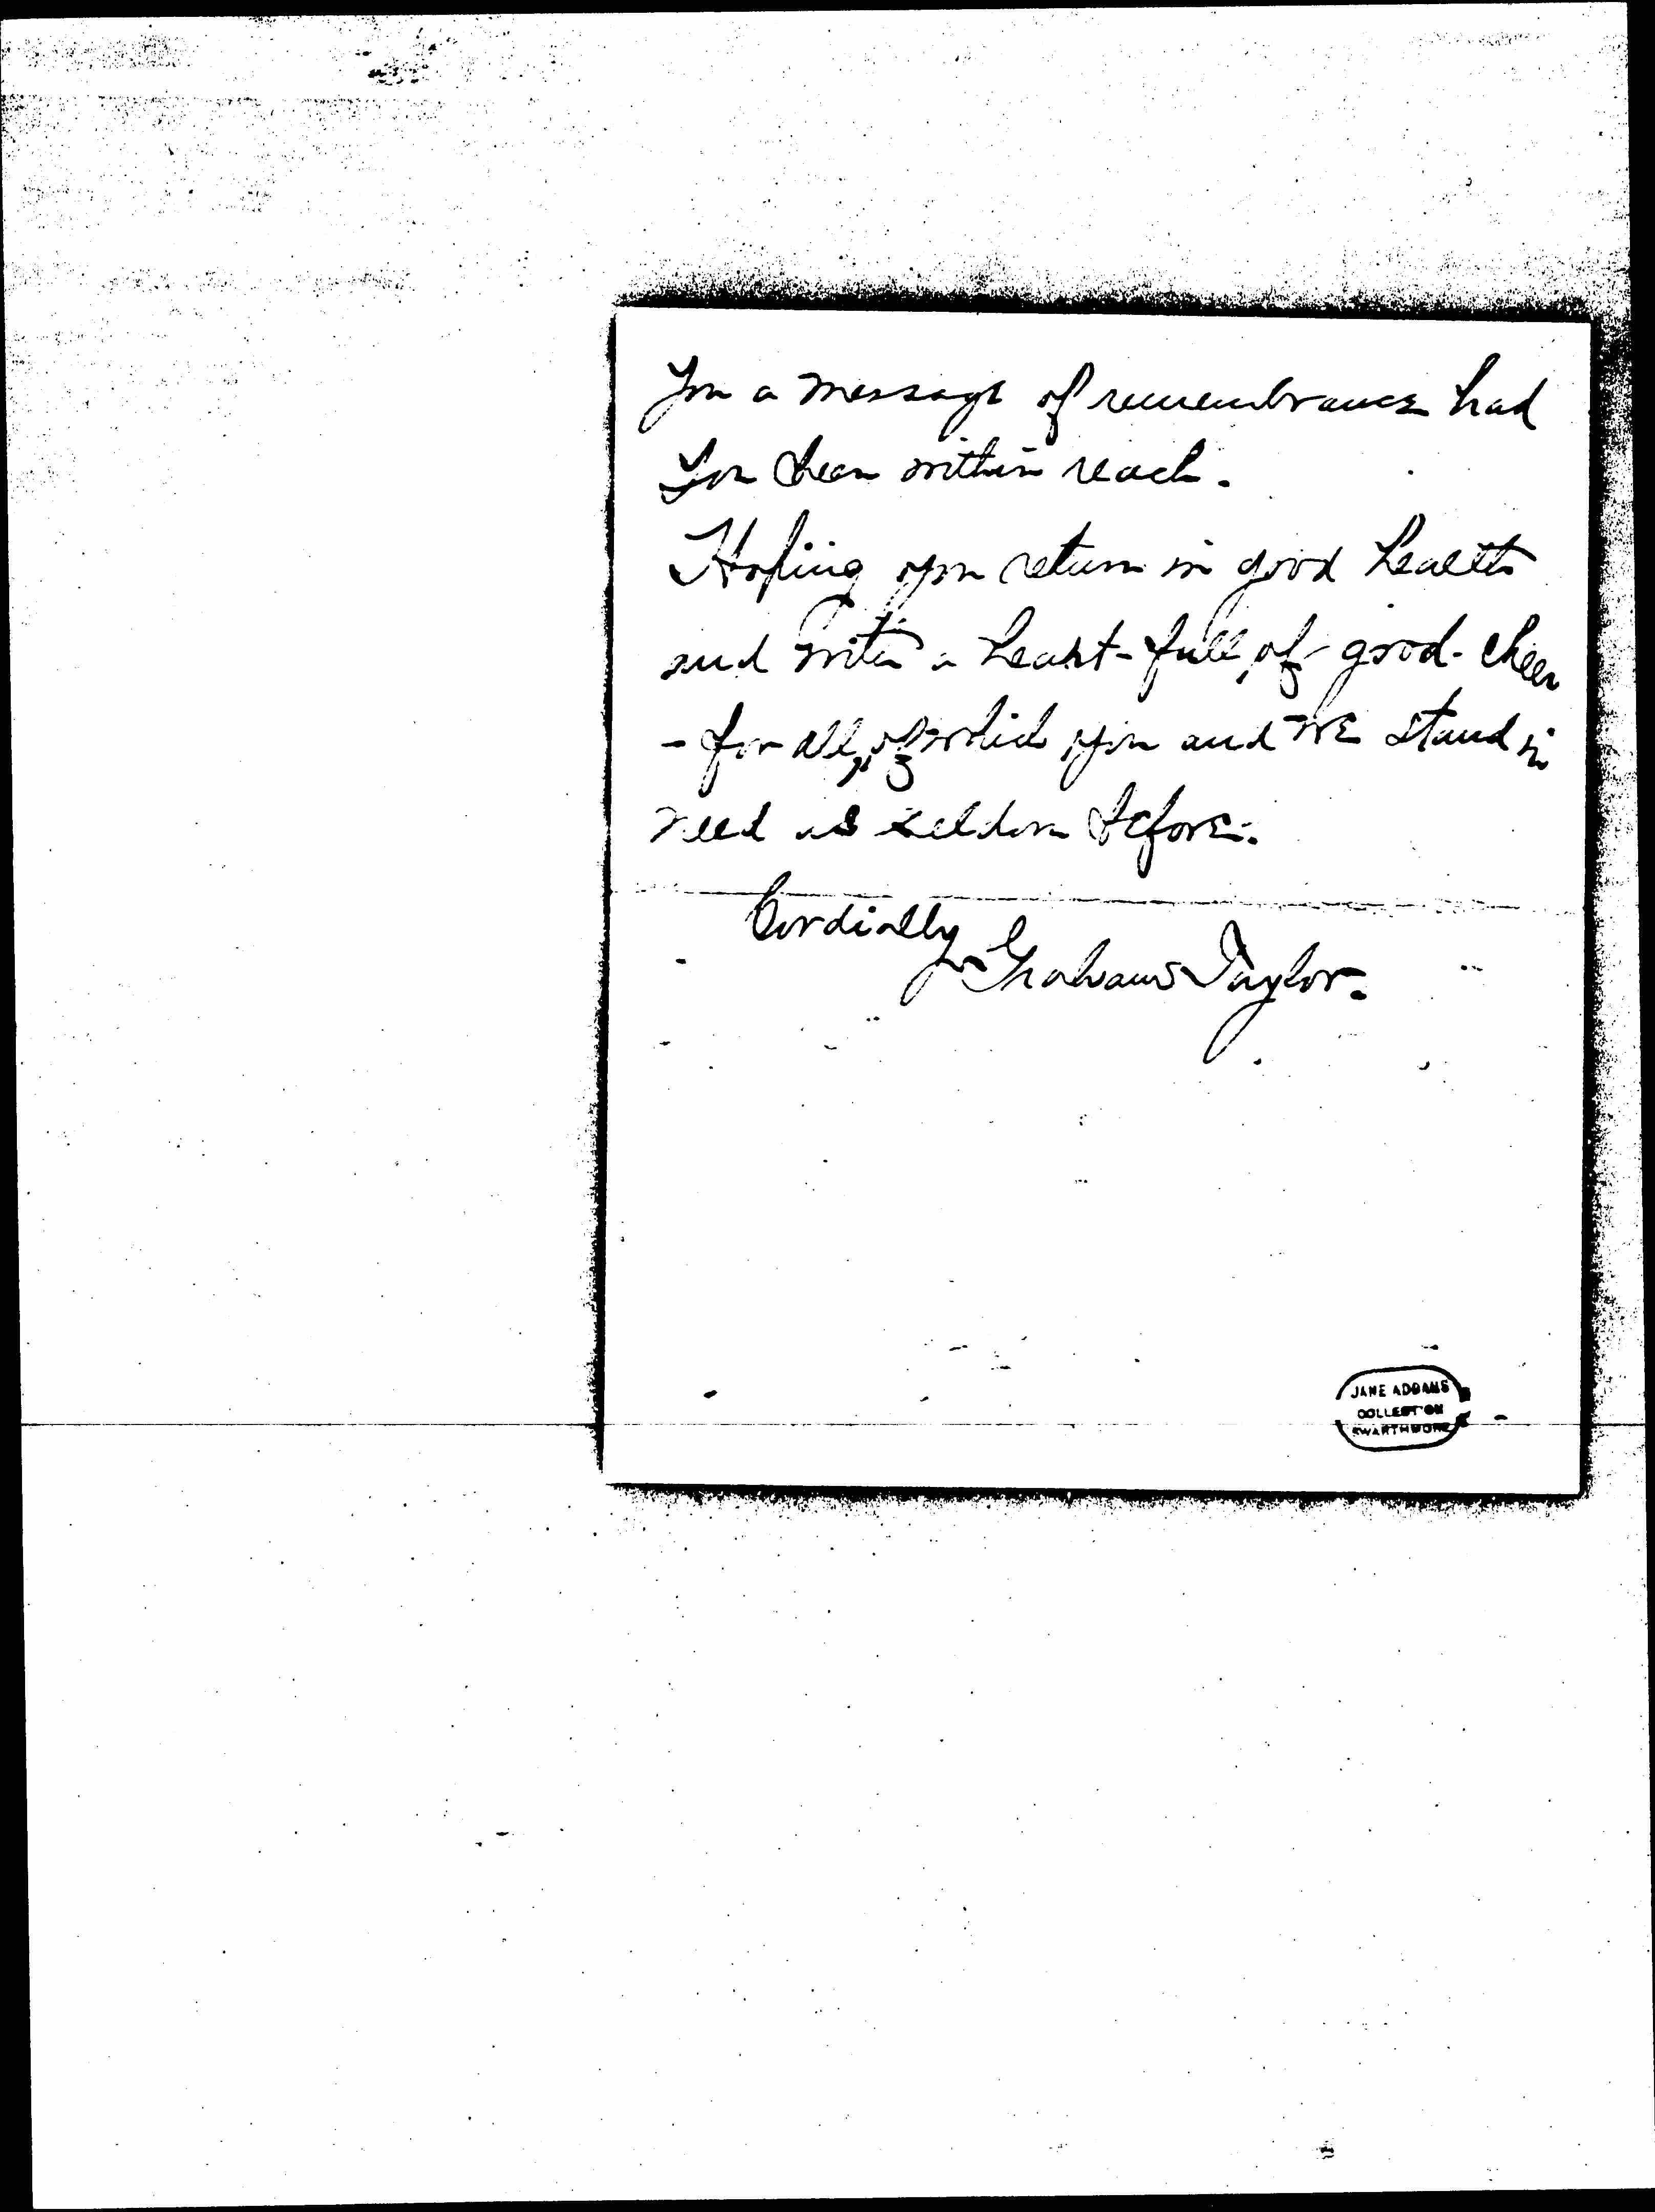 you a message of remembrance had
you been within reach.
Hoping you return in good health
and with a heart-full of good-cheer
- for all of which you and we stand in
need as seldom before.
Cordially
Graham Taylor.
JANE ADDAMS
COLLECTION
SWARTHMORE